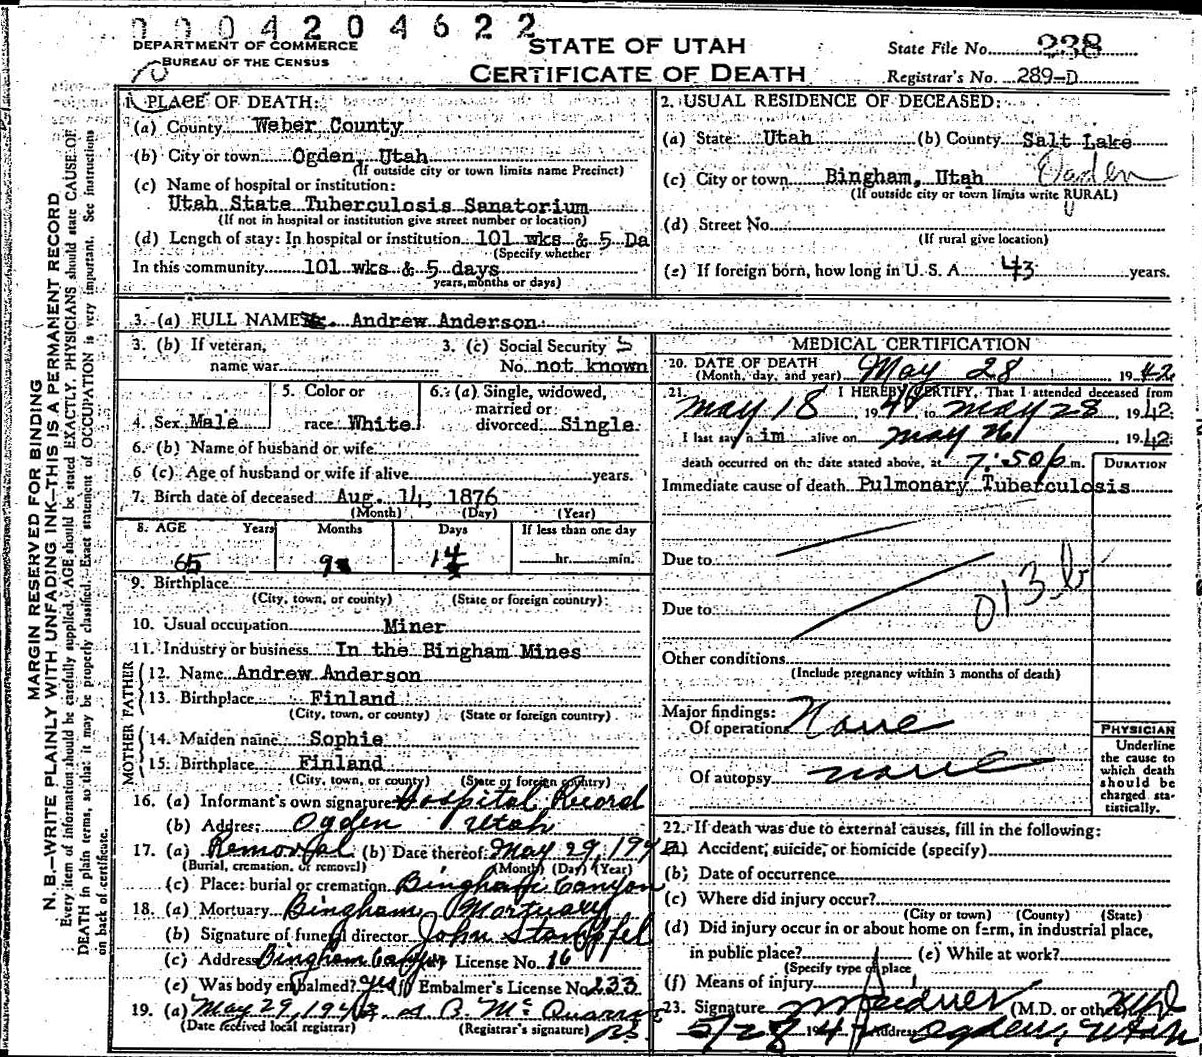 0004204622
DEPARTMENT OF COMMERCE
BUREAU OF THE CENSUS
STATE OF UTAH
CERTIFICATE OF DEATH
State File No. 238
Registrar's No. 289-D
MARGIN RESERVED FOR BINDING
N. B.—WRITE PLAINLY WITH UNFADING INK—THIS IS A PERMANENT RECORD
Every item of information should be carefully supplied. AGE should be stated EXACTLY. PHYSICIANS should state CAUSE OF
DEATH in plain terms, so that it may be properly classified. Exact statement of OCCUPATION is very important. See instructions
on back of certificate.
1. PLACE OF DEATH:
(a) County Weber County
(b) City or town Ogden, Utah
(If outside city or town limits name Precinct)
(c) Name of hospital or institution:
Utah State Tuberculosis Sanatorium
(If not in hospital or institution give street number or location)
(d) Length of stay: In hospital or institution 101 wks & 5 Da
(Specify whether
In this community 101 wks & 5 days
years, months or days)
2. USUAL RESIDENCE OF DECEASED:
(a) State Utah (b) County Salt Lake
(c) City or town Bingham, Utah Ogden
(If outside city or town limits write RURAL)
(d) Street No.
(If rural give location)
(e) If foreign born, how long in U. S. A. 43 years.
3. (a) FULL NAME Andrew Anderson
3. (b) If veteran, name war
3. (c) Social Security No. not known
4. Sex Male
5. Color or race White
6. (a) Single, widowed, married or divorced Single
6. (b) Name of husband or wife
6 (c) Age of husband or wife if alive years.
7. Birth date of deceased Aug. 14, 1876
(Month) (Day) (Year)
8. AGE Years Months Days If less than one day
65 9 14 hr. min.
9. Birthplace
(City, town, or county) (State or foreign country)
10. Usual occupation Miner
11. Industry or business In the Bingham Mines
FATHER
12. Name Andrew Anderson
13. Birthplace Finland
(City, town, or county) (State or foreign country)
MOTHER
14. Maiden name Sophie
15. Birthplace Finland
(City, town, or county) (State or foreign country)
16. (a) Informant's own signature Hospital Record
(b) Address Ogden Utah
17. (a) Removal (b) Date thereof May 29, 194
(Burial, cremation, or removal) (Month) (Day) (Year)
(c) Place: burial or cremation Bingham Canyon
18. (a) Mortuary Bingham Mortuary
(b) Signature of funeral director John Stampfel
(c) Address Bingham Canyon License No. 16
(e) Was body embalmed? yes (f) Embalmer's License No. 233
19. (a) May 29, 194
(Date received local registrar) (Registrar's signature)
MEDICAL CERTIFICATION
20. DATE OF DEATH
(Month, day, and year) May 28 1942
21. I HEREBY CERTIFY, That I attended deceased from
May 18 19 to May 28 1942
I last saw him alive on May 26 1942
death occurred on the date stated above, at 7:50 p m.
DURATION
Immediate cause of death Pulmonary Tuberculosis
Due to
Due to
013 b
Other conditions
(Include pregnancy within 3 months of death)
Major findings:
Of operation None
Of autopsy none
PHYSICIAN
Underline
the cause to
which death
should be
charged sta-
tistically.
22. If death was due to external causes, fill in the following:
(a) Accident, suicide, or homicide (specify)
(b) Date of occurrence
(c) Where did injury occur?
(City or town) (County) (State)
(d) Did injury occur in or about home on farm, in industrial place,
in public place? (e) While at work?
(Specify type of place
(f) Means of injury
23. Signature (M.D. or other)
5/28 4 Address Ogden, Utah